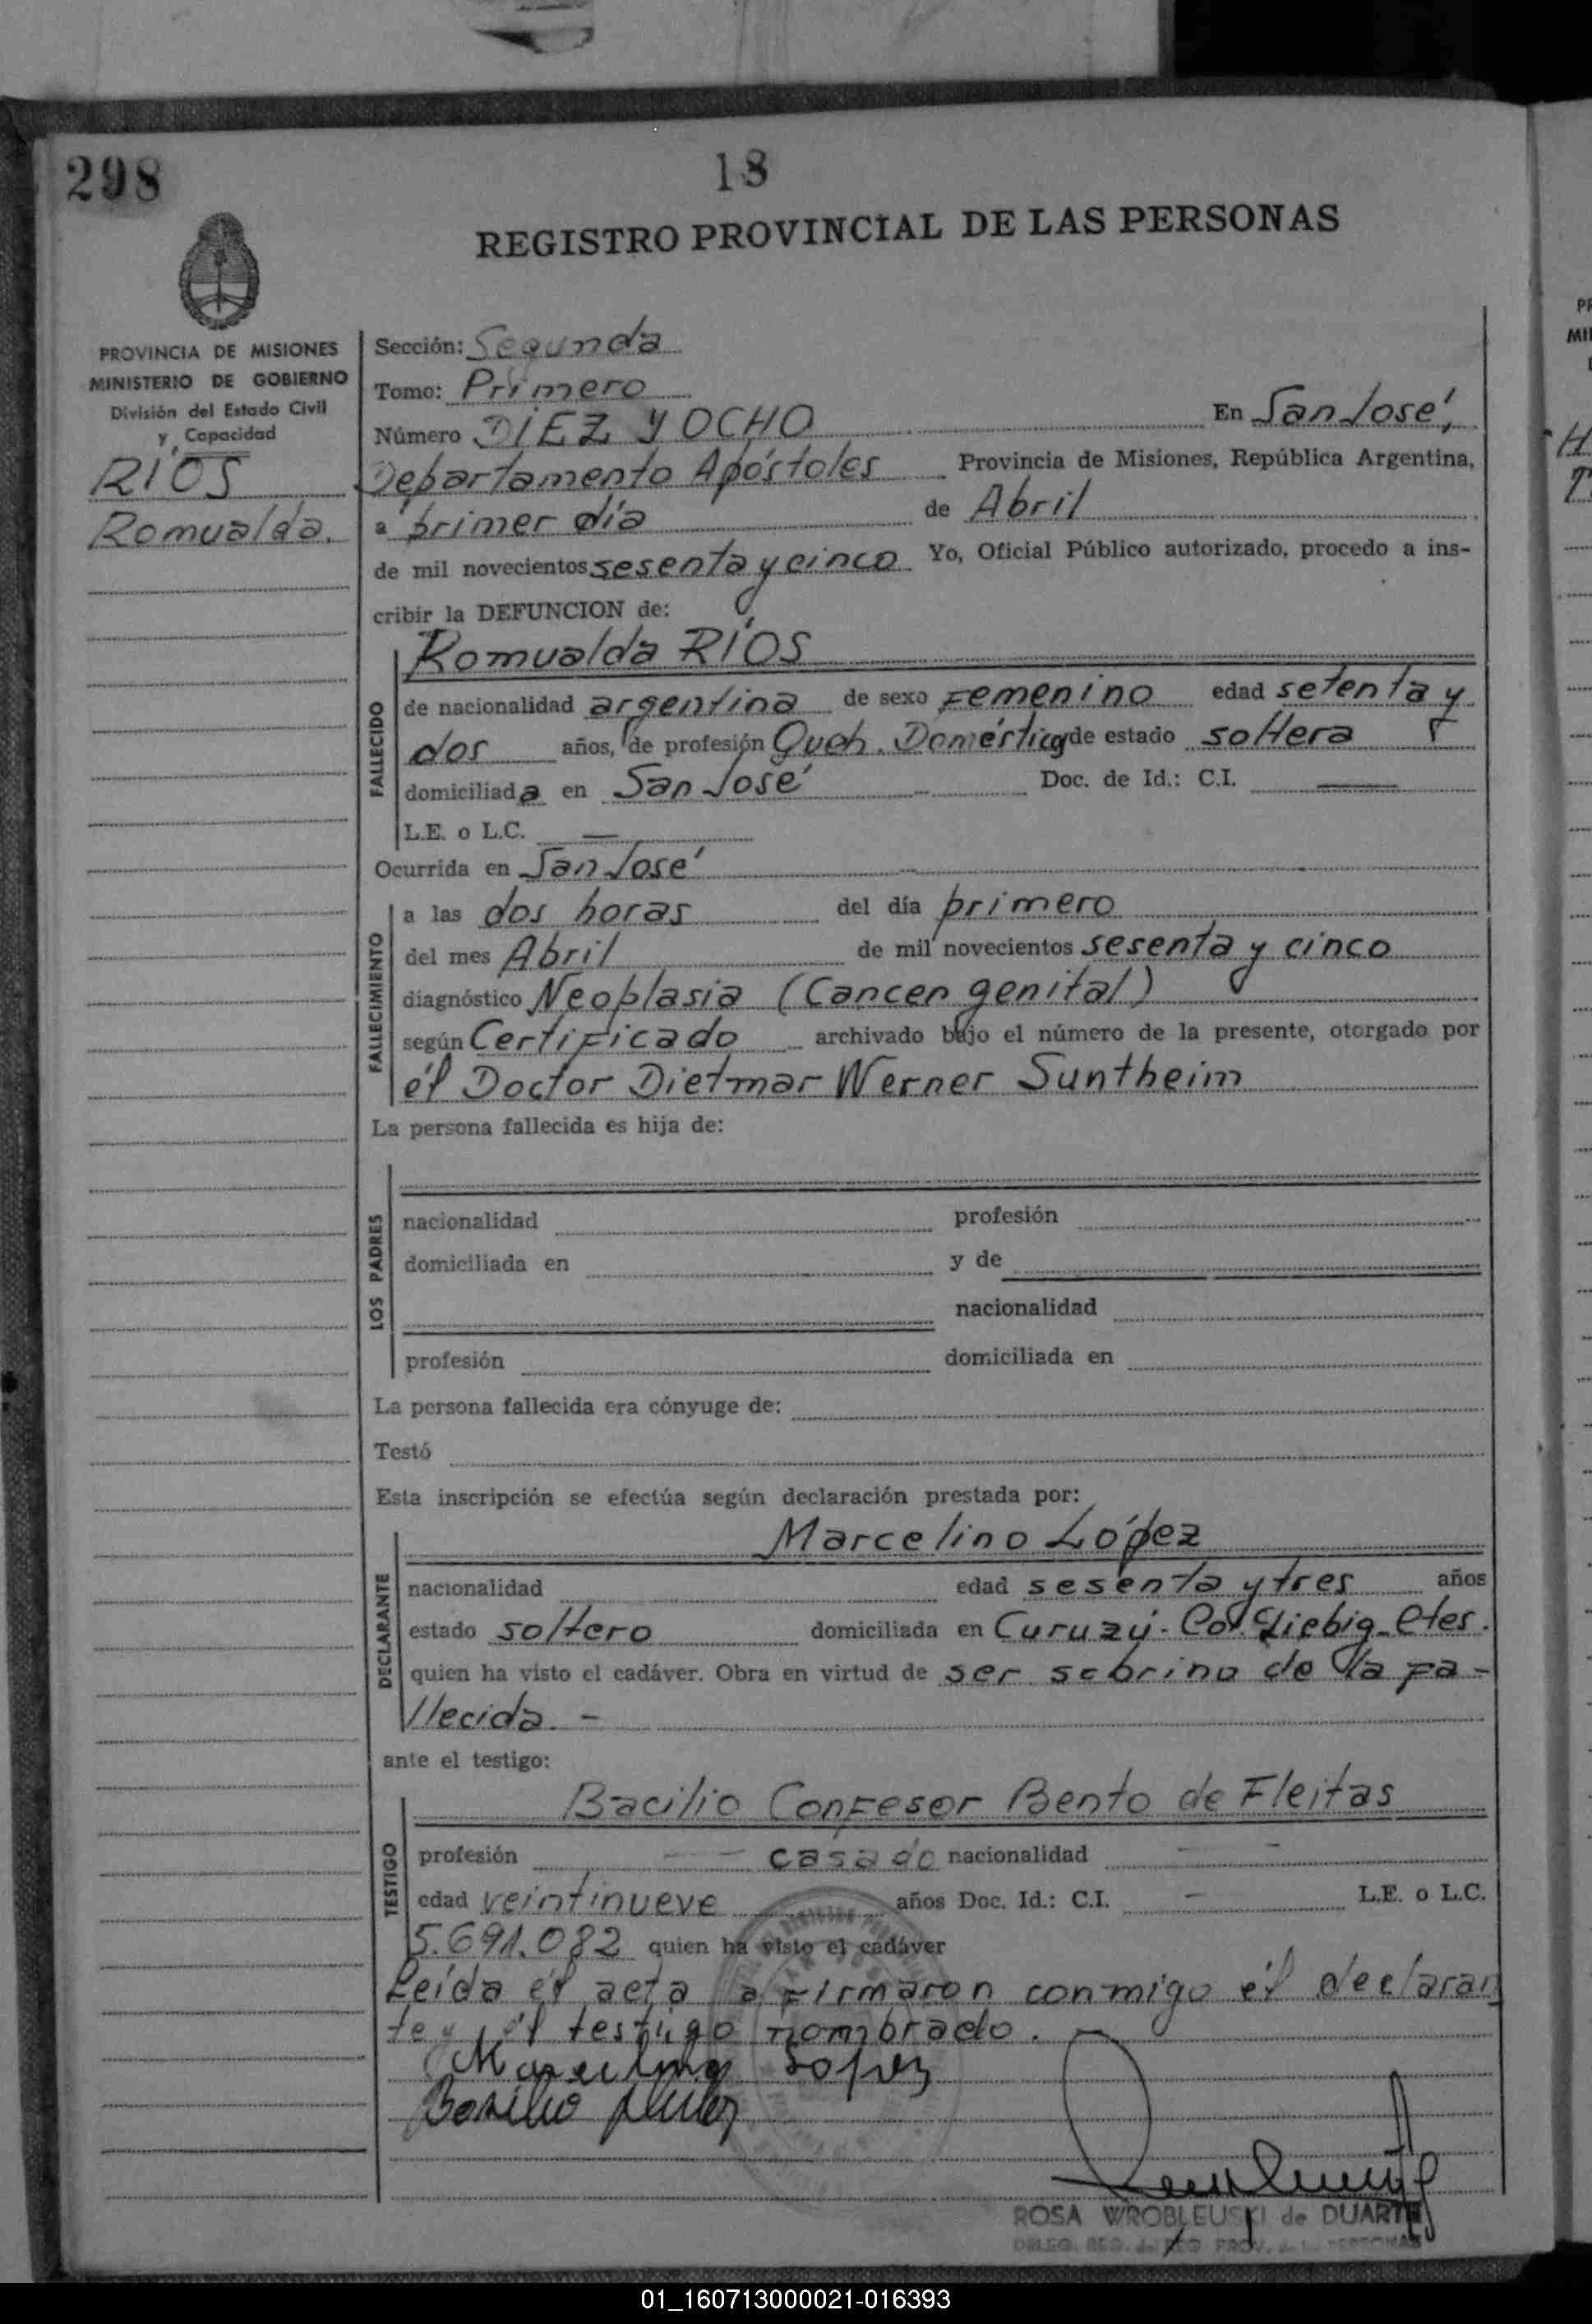 298
18
REGISTRO PROVINCIAL DE LAS PERSONAS
PROVINCIA DE MISIONES
MINISTERIO DE GOBIERNO
División del Estado Civil
y Capacidad
RÍOS
Romualda.
Sección: Segunda
Tomo: Primero
Número DIEZ y OCHO En San José,
Departamento Apóstoles Provincia de Misiones, República Argentina,
a primer día de Abril
de mil novecientos sesenta y cinco Yo, Oficial Público autorizado, procedo a ins-
cribir la DEFUNCION de:
FALLECIDO
Romualda RÍOS
de nacionalidad argentina de sexo Femenino edad setenta y
dos años, de profesión Queh. Doméstico de estado soltera
domiciliada en San José Doc. de Id.: C.I. —
L.E. o L.C. —
Ocurrida en San José
FALLECIMIENTO
a las dos horas del día primero
del mes Abril de mil novecientos sesenta y cinco
diagnóstico Neoplasia (Cancer genital)
según Certificado archivado bajo el número de la presente, otorgado por
él Doctor Dietmar Werner Suntheim
La persona fallecida es hija de:
LOS PADRES
nacionalidad profesión
domiciliada en y de
nacionalidad
profesión domiciliada en
La persona fallecida era cónyuge de:
Testó
Esta inscripción se efectúa según declaración prestada por:
DECLARANTE
Marcelino López
nacionalidad edad sesenta y tres años
estado soltero domiciliada en Curuzú- Col. Liebig- Ctes.
quien ha visto el cadáver. Obra en virtud de ser sobrino de la fa-
llecida. -
ante el testigo:
TESTIGO
Bacilio Confesor Bento de Fleitas
profesión — — casado nacionalidad — -
edad veintinueve años Doc. Id.: C.I. — L.E. o L.C.
5.691.082 quien ha visto el cadáver
Leída él acta la firmaron conmigo él declaran
te y él testigo nombrado. —
Marcelino Lopez
Basilio
ROSA WROBLEUSKI de DUARTE
DELEG. REG. del REG. PROV. de las PERSONAS
01_160713000021-016393